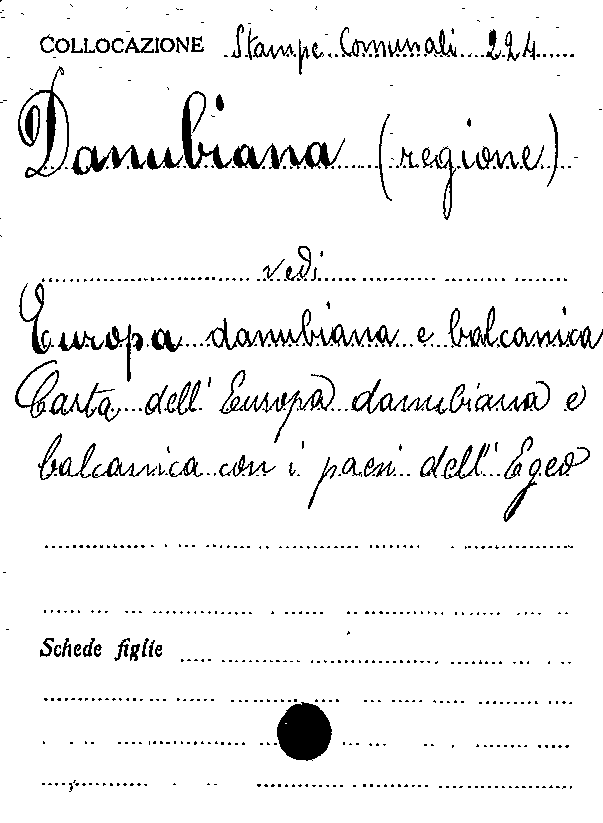 COLLOCAZIONE Stampe Comunali 224
Danubiana (regione)
vedi
Europa danubiana e balcanica
Carta dell'Europa danubiana e
balcanica con i paesi dell'Egeo
Schede figlie